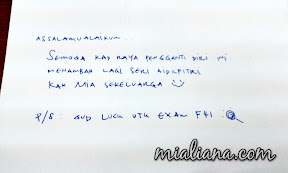 ASSALAMUALAIKUM.
SEMOGA KAD RAYA PENGGANTI DIRI INI
MENAMBAH LAGI SERI AIDILFITRI
KAK MIA SEKELUARGA
P/S: GUD LUCK UTK EXAM FHI :
mialiana.com